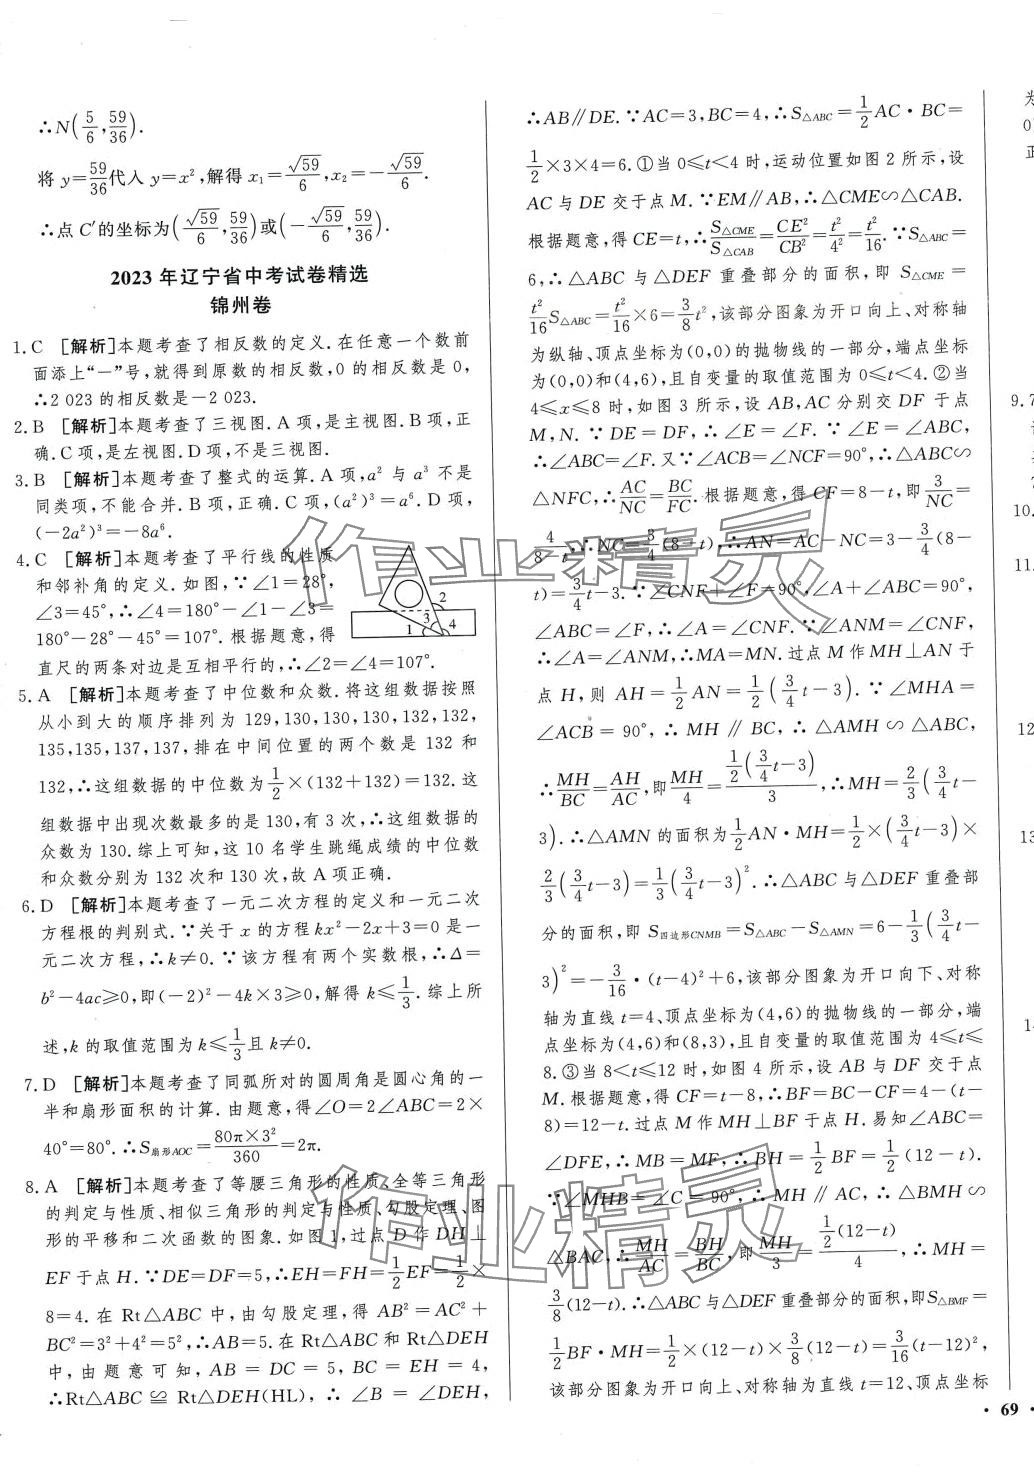 ∴N(5/6,59/36).
将 y=59/36代入 y=x²,解得 x₁=√59/6,x₂=-√59/6.
∴点 C′的坐标为(√59/6,59/36)或(-√59/6,59/36).
2023 年辽宁省中考试卷精选
锦州卷
1. C [解析]本题考查了相反数的定义.在任意一个数前
面添上“一”号,就得到原数的相反数,0 的相反数是 0,
∴2 023 的相反数是-2 023.
2. B [解析]本题考查了三视图.A 项,是主视图.B 项,正
确.C 项,是左视图.D 项,不是三视图.
3. B [解析]本题考查了整式的运算.A 项,a² 与 a³ 不是
同类项,不能合并.B 项,正确.C 项,(a²)³=a⁶.D 项,
(-2a²)³=-8a⁶.
4. C [解析]本题考查了平行线的性质
和邻补角的定义.如图,∵∠1=28°,
∠3=45°,∴∠4=180°-∠1-∠3=
180°-28°-45°=107°.根据题意,得
直尺的两条对边是互相平行的,∴∠2=∠4=107°.
2
3
1
4
5. A [解析]本题考查了中位数和众数.将这组数据按照
从小到大的顺序排列为 129,130,130,130,132,132,
135,135,137,137,排在中间位置的两个数是 132 和
132,∴这组数据的中位数为1/2×(132+132)=132.这
组数据中出现次数最多的是 130,有 3 次,∴这组数据的
众数为 130.综上可知,这 10 名学生跳绳成绩的中位数
和众数分别为 132 次和 130 次,故 A 项正确.
6. D [解析]本题考查了一元二次方程的定义和一元二次
方程根的判别式.∵关于 x 的方程 kx²-2x+3=0 是一
元二次方程,∴k≠0.∵该方程有两个实数根,∴Δ=
b²-4ac≥0,即(-2)²-4k×3≥0,解得 k≤1/3.综上所
述,k 的取值范围为 k≤1/3且 k≠0.
7. D [解析]本题考查了同弧所对的圆周角是圆心角的一
半和扇形面积的计算.由题意,得∠O=2∠ABC=2×
40°=80°.∴S扇形AOC=80π×3²/360=2π.
8. A [解析]本题考查了等腰三角形的性质、全等三角形
的判定与性质、相似三角形的判定与性质、勾股定理、图
形的平移和二次函数的图象.如图 1,过点 D 作 DH⊥
EF 于点 H.∵DE=DF=5,∴EH=FH=1/2EF=1/2×
8=4.在 Rt△ABC 中,由勾股定理,得 AB²=AC²+
BC²=3²+4²=5²,∴AB=5.在 Rt△ABC 和 Rt△DEH
中,由题意可知,AB=DC=5,BC=EH=4,
∴Rt△ABC≌Rt△DEH(HL),∴∠B=∠DEH,
∴AB∥DE.∵AC=3,BC=4,∴S△ABC=1/2AC·BC=
1/2×3×4=6.①当 0≤t<4 时,运动位置如图 2 所示,设
AC 与 DE 交于点 M.∵EM∥AB,∴△CME∽△CAB.
根据题意,得 CE=t,∴S△CME/S△CAB=CE²/CB²=t²/4²=t²/16.∵S△ABC=
6,∴△ABC 与△DEF 重叠部分的面积,即 S△CME=
t²/16S△ABC=t²/16×6=3/8t²,该部分图象为开口向上、对称轴
为纵轴、顶点坐标为(0,0)的抛物线的一部分,端点坐标
为(0,0)和(4,6),且自变量的取值范围为 0≤t<4.②当
4≤x≤8 时,如图 3 所示,设 AB,AC 分别交 DF 于点
M,N.∵DE=DF,∴∠E=∠F.∵∠E=∠ABC,
∴∠ABC=∠F.又∵∠ACB=∠NCF=90°,∴△ABC∽
△NFC,∴AC/NC=BC/FC.根据题意,得 CF=8-t,即3/NC=
4/8-t,∴NC=3/4(8-t),∴AN=AC-NC=3-3/4(8-
t)=3/4t-3.∵∠CNF+∠F=90°,∠A+∠ABC=90°,
∠ABC=∠F,∴∠A=∠CNF.∵∠ANM=∠CNF,
∴∠A=∠ANM,∴MA=MN.过点 M 作 MH⊥AN 于
点 H,则 AH=1/2AN=1/2(3/4t-3).∵∠MHA=
∠ACB=90°,∴MH∥BC,∴△AMH∽△ABC,
∴MH/BC=AH/AC,即MH/4=1/2(3/4t-3)/3,∴MH=2/3(3/4t-
3).∴△AMN 的面积为1/2AN·MH=1/2×(3/4t-3)×
2/3(3/4t-3)=1/3(3/4t-3)².∴△ABC 与△DEF 重叠部
分的面积,即 S四边形CNMB=S△ABC-S△AMN=6-1/3(3/4t-
3)²=-3/16·(t-4)²+6,该部分图象为开口向下、对称
轴为直线 t=4、顶点坐标为(4,6)的抛物线的一部分,端
点坐标为(4,6)和(8,3),且自变量的取值范围为 4≤t≤
8.③当 8<t≤12 时,如图 4 所示,设 AB 与 DF 交于点
M.根据题意,得 CF=t-8,∴BF=BC-CF=4-(t-
8)=12-t.过点 M 作 MH⊥BF 于点 H.易知∠ABC=
∠DFE,∴MB=MF,∴BH=1/2BF=1/2(12-t).
∵∠MHB=∠C=90°,∴MH∥AC,∴△BMH∽
△BAC,∴MH/AC=BH/BC,即MH/3=1/2(12-t)/4,∴MH=
3/8(12-t).∴△ABC 与△DEF 重叠部分的面积,即S△BMF=
1/2BF·MH=1/2×(12-t)×3/8(12-t)=3/16(t-12)²,
该部分图象为开口向上、对称轴为直线 t=12、顶点坐标
为
0
正
9.7
10.
11.
12
13
14
· 69 ·
作业精灵
作业精灵